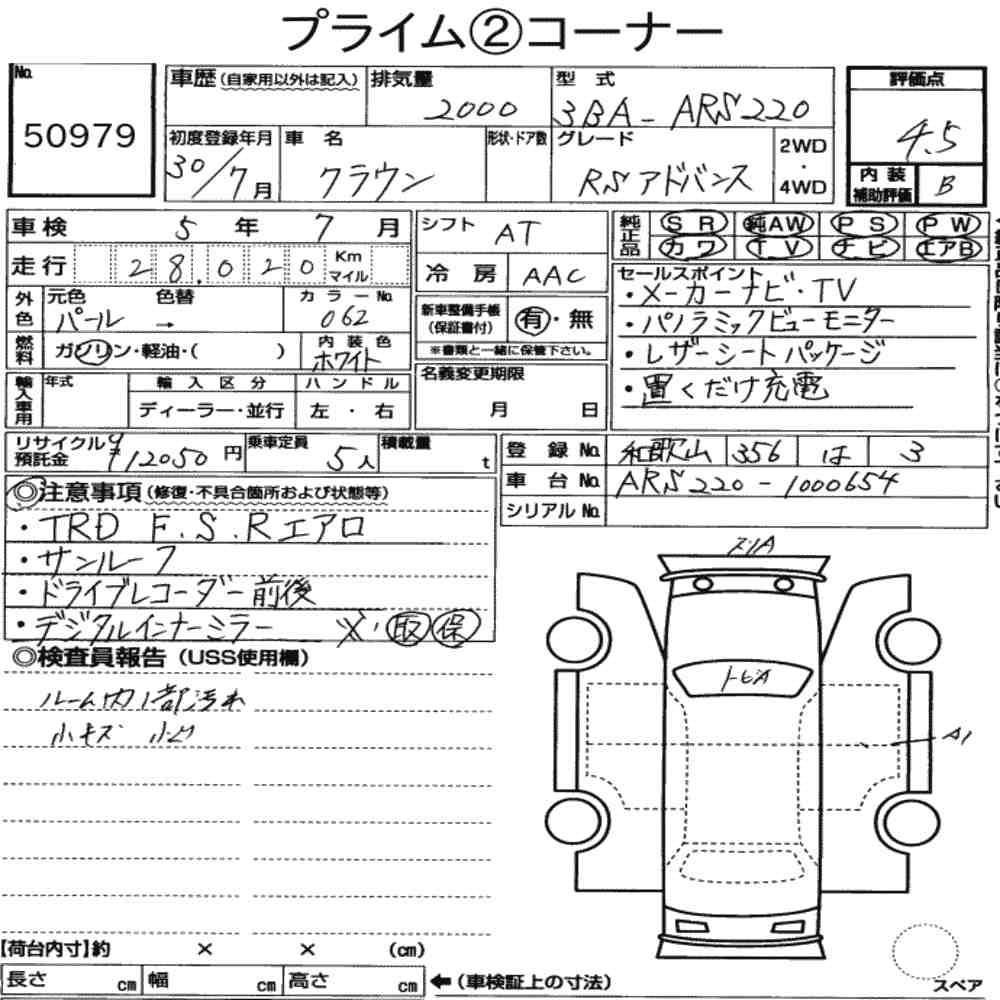 プライム②コーナー
No. 50979
車歴（自家用以外は記入） 排気量 2000 型式 3BA-ARS220
初度登録年月 30/7月 車名 クラウン 形状・ドア数 グレード RSアドバンス 2WD・4WD
評価点 4.5
内装補助評価 B
車検 5年 7月
走行 28,020 Km マイル
外色 元色 パール 色替 → カラーNo. 062
燃料 ガソリン・軽油・( ) 内装色 ホワイト
輸入車用 年式 輸入区分 ディーラー・並行 ハンドル 左・右
シフト AT
冷房 AAC
新車整備手帳（保証書付） 有・無
※書類と一緒に保管下さい。
名義変更期限 月 日
純正品 SR 純AW PS PW
カワ TV ナビ エアB
セールスポイント
・メーカーナビ・TV
・パノラミックビューモニター
・レザーシートパッケージ
・置くだけ充電
リサイクル預託金 12050円 乗車定員 5人 積載量 t
登録No. 和歌山 356 は 3
車台No. ARS220-1000654
シリアルNo.
◎注意事項（修復・不具合箇所および状態等）
・TRD F.S.Rエアロ
・サンルーフ
・ドライブレコーダー前後
・デジタルインナーミラー ※・取保
◎検査員報告（USS使用欄）
ルーム内1部汚れ
小キズ 小凹
トビA
A1
【荷台内寸】約 × × (cm)
長さ cm 幅 cm 高さ cm ←（車検証上の寸法）
スペア